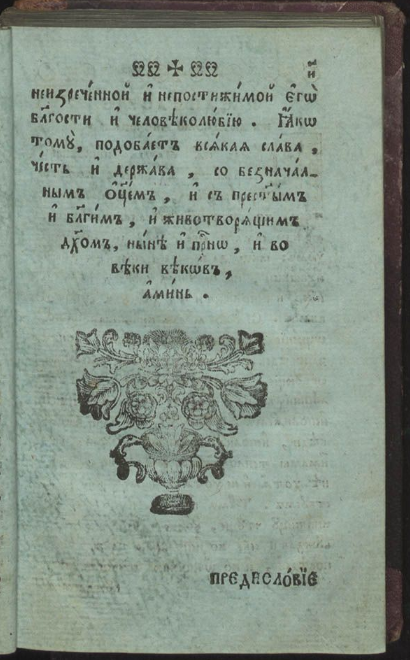 и҃
неизрече́нной и҆ непостижи́мой є҆гѡ̀
бл҃гости и҆ человѣколю́бїю. Ꙗ҆́кѡ
томꙋ̀, подоба́етъ всѧ́каѧ сла́ва,
че́сть и҆ держа́ва, со безнача́л-
нымъ Ѻц҃е́мъ, и҆ съ прест҃ы́мъ
и҆ бл҃ги́мъ, и҆ животворѧ́щимъ
дх҃омъ, ны́нѣ и҆ при́снѡ, и҆ во
вѣ́ки вѣкѡ́въ,
а҆ми́нь.
предъсло́вїе